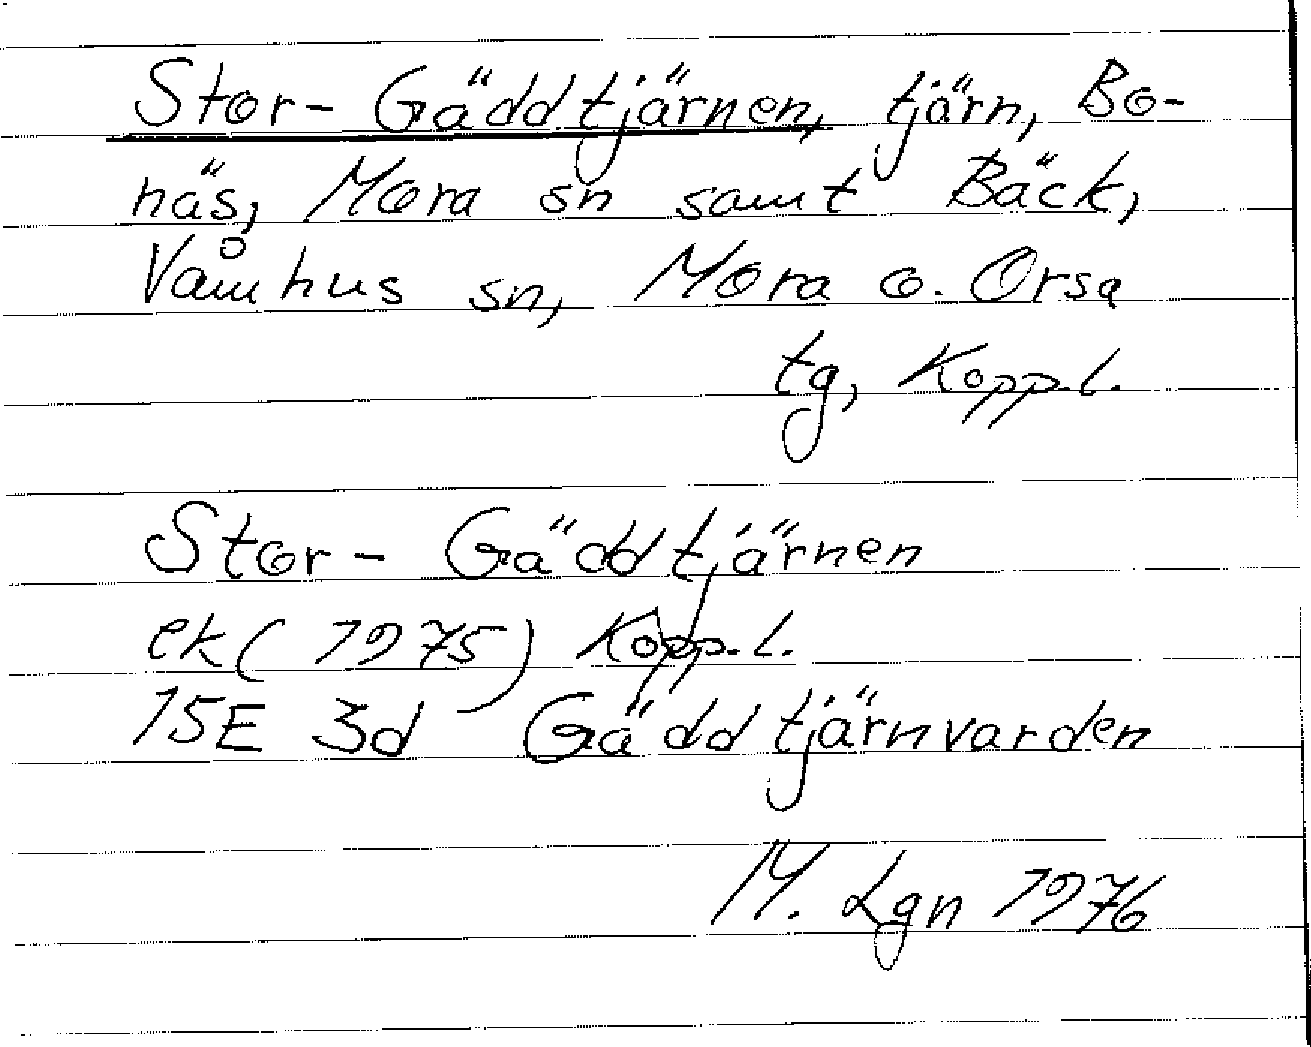 Stor-Gäddtjärnen, tjärn, Bo-
näs, Mora sn samt Bäck,
Våmhus sn, Mora o. Orsa
tg, Koppl.
Stor-Gäddtjärnen
ek (1975) Kopp.l.
15E 3d Gäddtjärnvarden
M. Lgn 1976